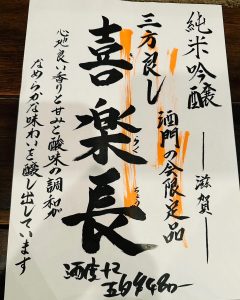 純米吟醸 ― 滋賀 ―
酒門の会限定品
三方良し
喜楽長
らくちょう
心地良い香りと甘と酸味の調和が
なめらかな味わいを醸し出しています